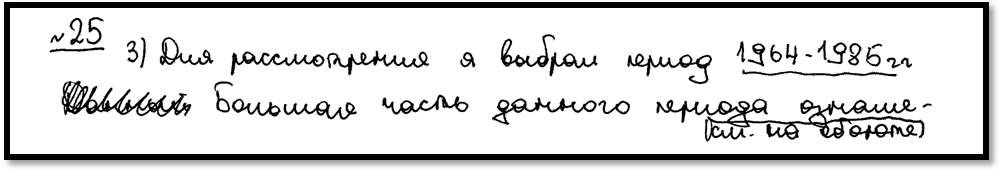 №25
3) Для рассмотрения я выбрал период 1964-1985гг
Большая часть данного периода ознаме-
(см. на обороте)